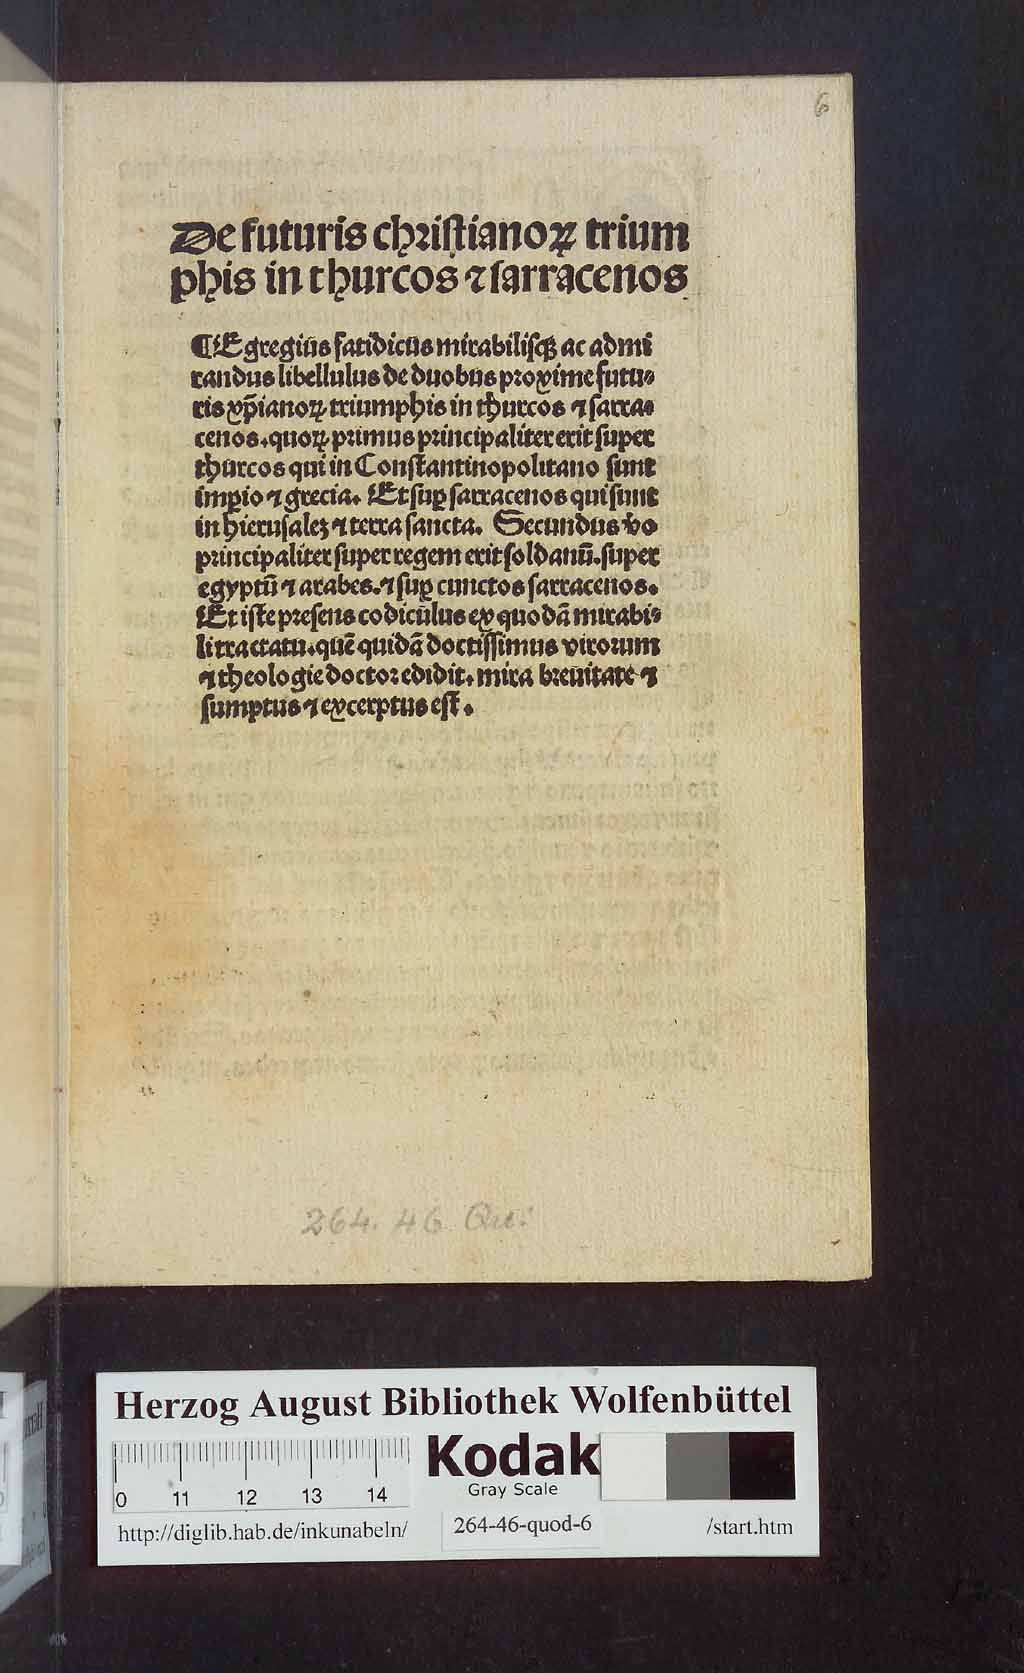 6
De futuris christianoꝝ trium
phis in thurcos ⁊ sarracenos
¶ Egregius fatidicus mirabilisqꝫ ac admi
randus libellulus de duobus proxime futu-
ris xp̄ianoꝝ triumphis in thurcos ⁊ sarra-
cenos. quoꝝ primus principaliter erit super
thurcos qui in Constantinopolitano sunt
imꝑio ⁊ grecia. Et suꝑ sarracenos qui sunt
in hierusaleꝫ ⁊ terra sancta. Secundus v̾o
principaliter super regem erit soldanū. super
egyptū ⁊ arabes. ⁊ suꝑ cunctos sarracenos.
Et iste presens codiculus ex quodā mirabi-
li tractatu. quē quidā doctissimus virorum
⁊ theologie doctor edidit. mira breuitate ⁊
sumptus ⁊ excerptus est.
264. 46 Qu:
Herzog August Bibliothek Wolfenbüttel
0 11 12 13 14
Kodak
Gray Scale
http://diglib.hab.de/inkunabeln/
264-46-quod-6
/start.htm